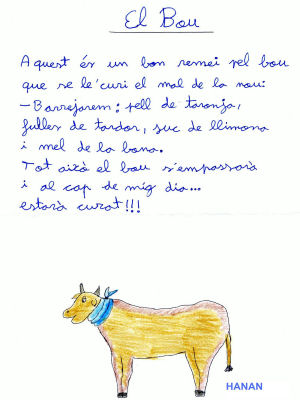 El Bou
Aquest és un bon remei pel bou
que se le'curi el mal de la nou:
-Barrejarem: pell de taronja,
fulles de tardor, suc de llimona
i mel de la bona.
Tot això el bou s'empassarà
i al cap de mig dia...
estarà curat!!!
HANAN